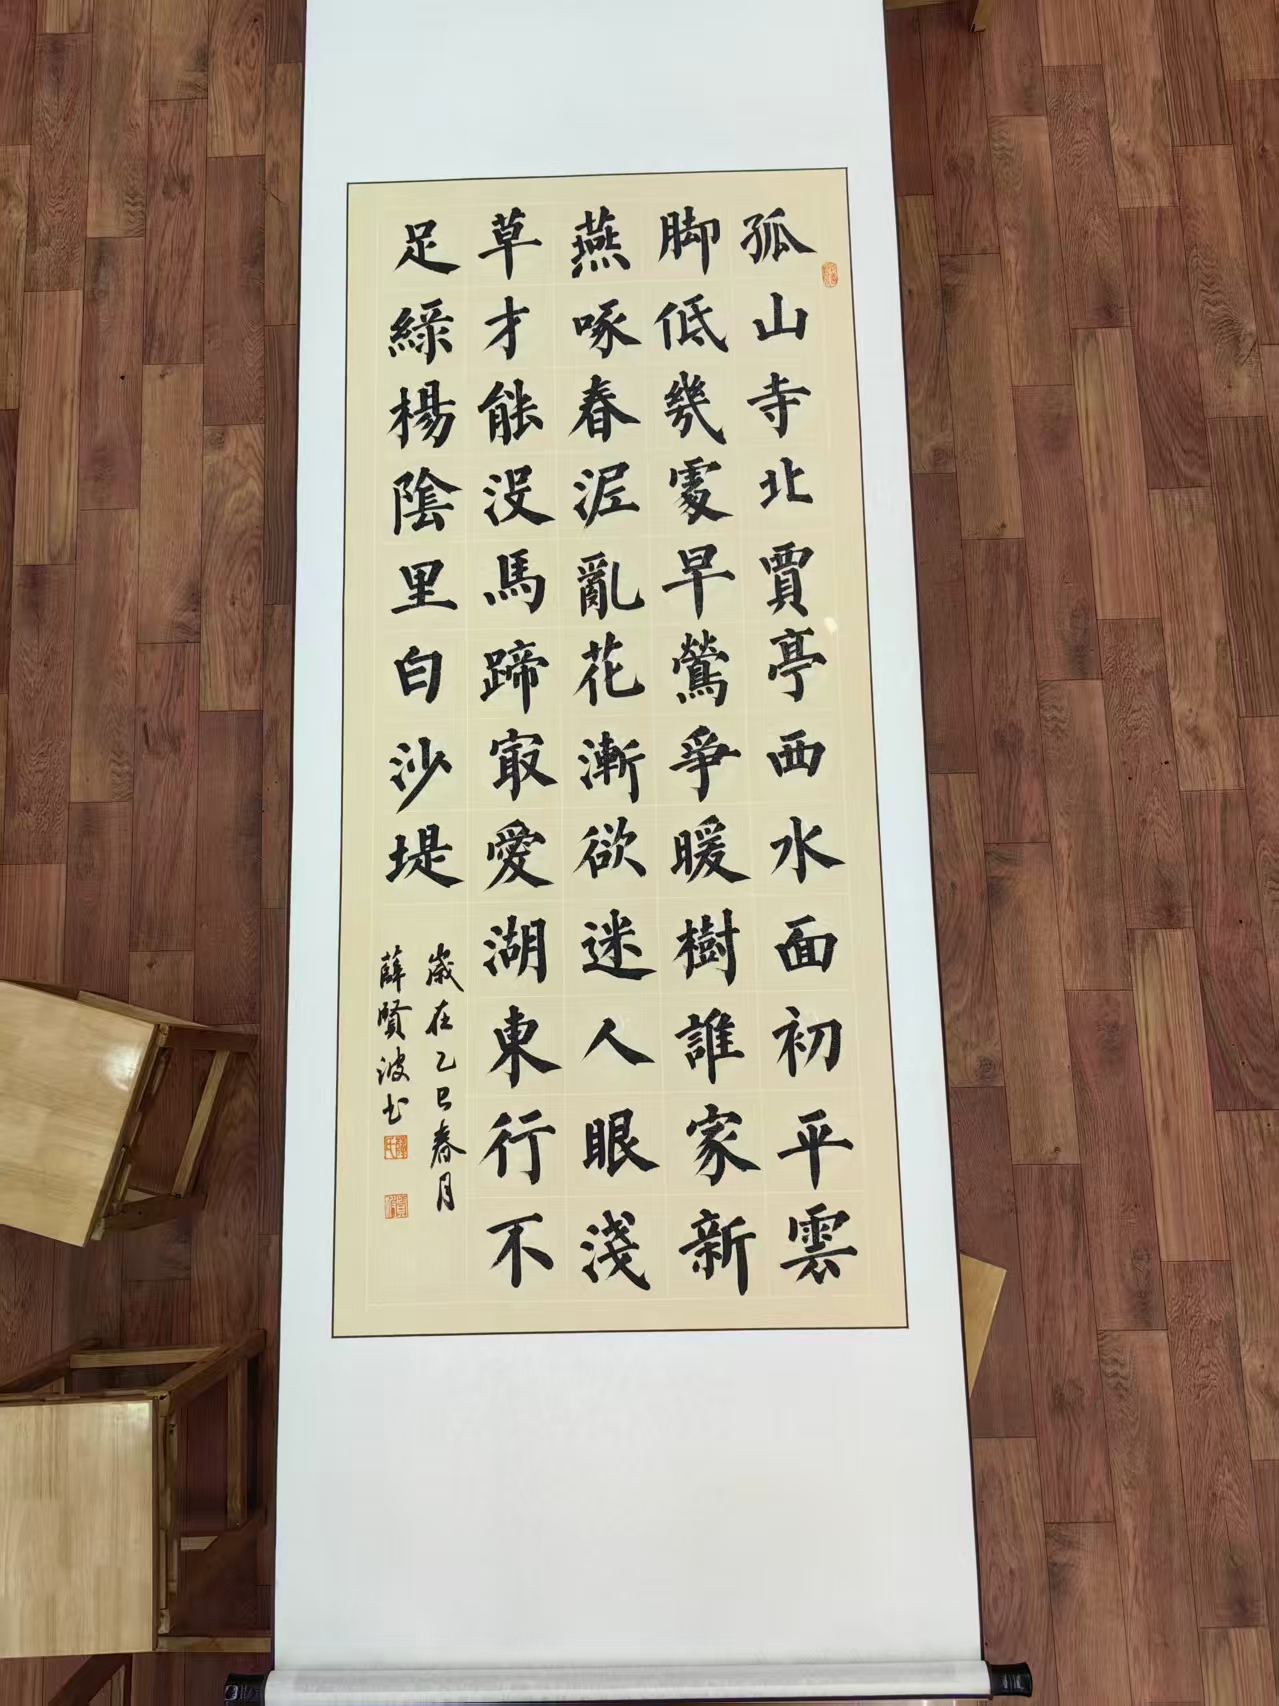 孤山寺北賈亭西水面初平雲
脚低幾處早鶯爭暖樹誰家新
燕啄春泥亂花漸欲迷人眼淺
草才能没馬蹄冣愛湖東行不
足綠楊陰里白沙堤
歲在乙巳春月
薛賢波书